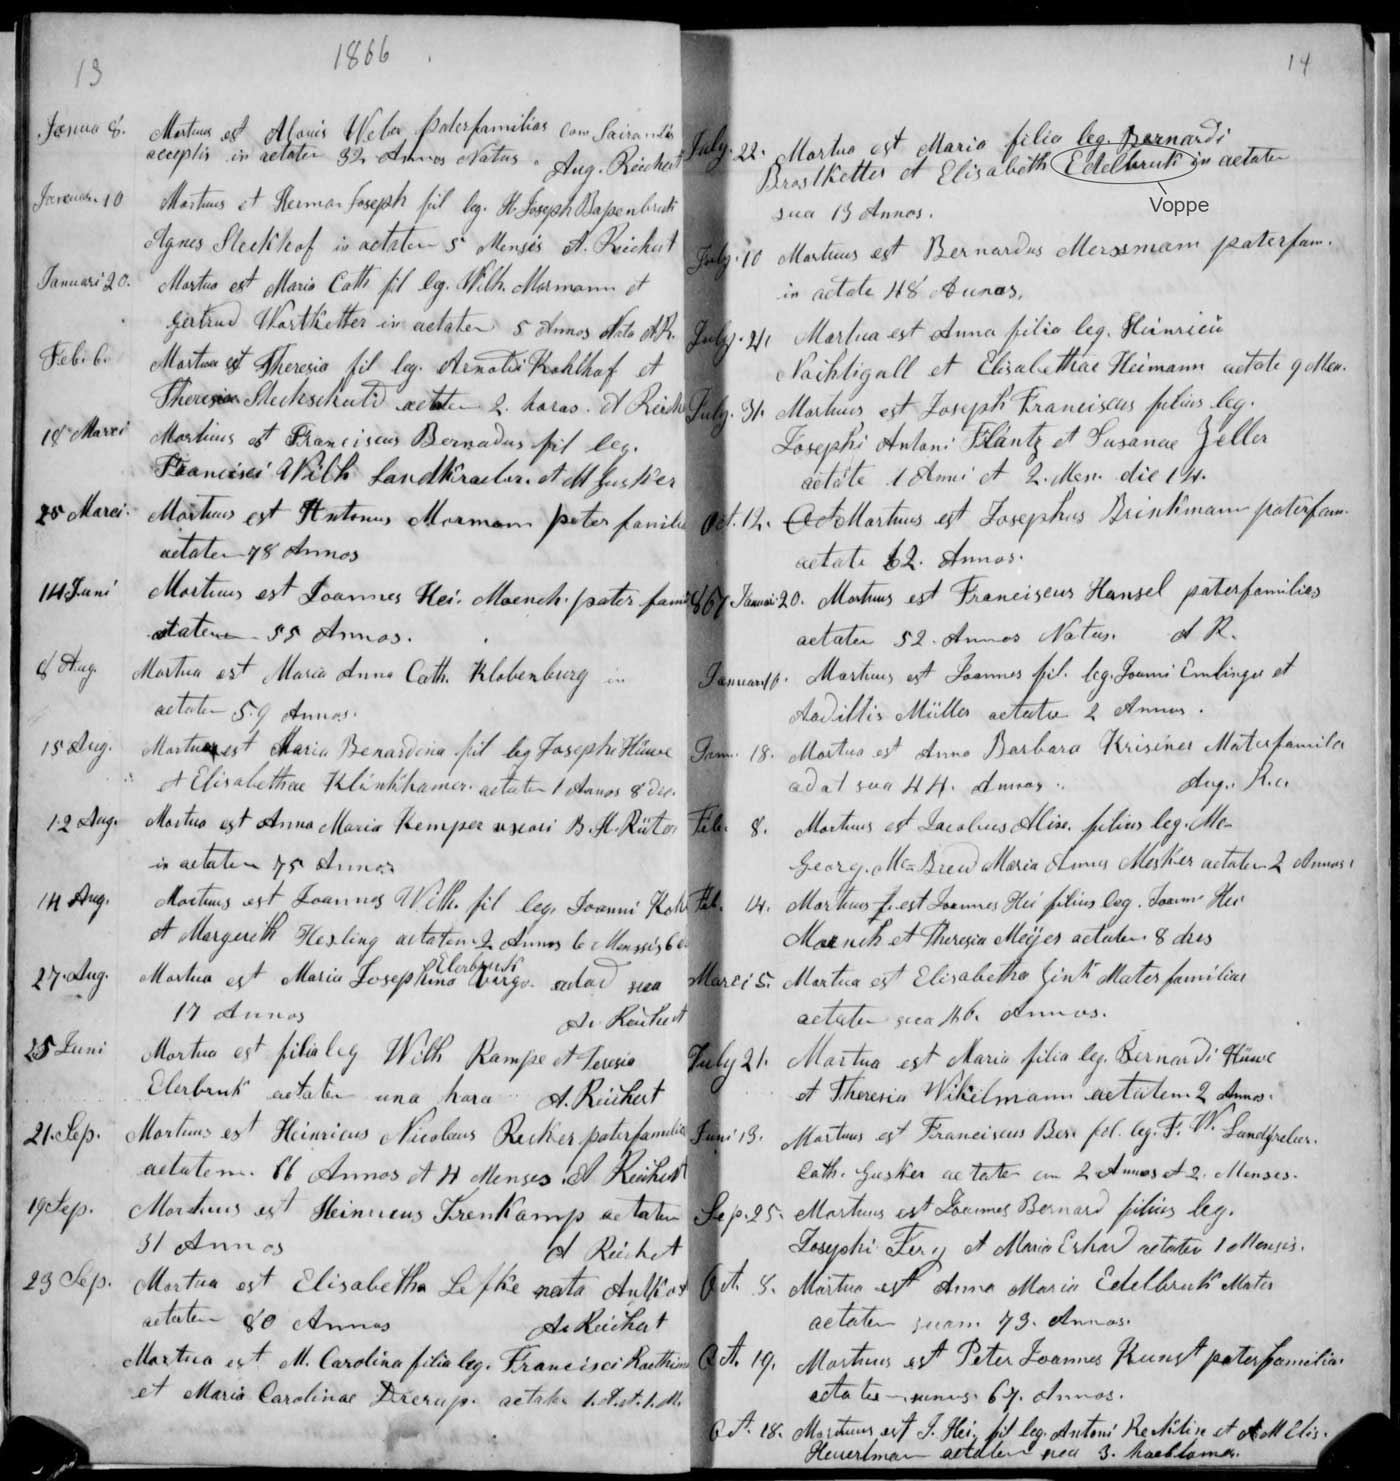 13
1866
Janua 8. Mortuus est Aloois Weber paterfamilias cum
acceptis in aetaten 32 Annos Natus. Aug. Reichert
Januar. 10 Mortuus est Herman Joseph fil leg. H. Joseph
Agnes in aetaten 5 Mensis A. Reichert
Januari 20. Mortua est Maria Cath fil leg. Wilh. Mormann et
Gertrud Wortketter in aetaten 5 Annos Nata A.R.
Feb. 6. Mortua est Theresia fil leg. Arnoldi Kohlhof et
Theresia aetaten 2. horas. A Reich
18 Marci Mortuus est Franciscus Bernadus fil leg.
Francisci Wilh et M Gusker
25 Marci. Mortuus est Antonus Mormann pater familia
aetaten 78 Annos
14 Juni Mortuus est Joannes Hei. Moench. pater fami
aetatem 55 Annos.
8 Aug. Mortua est Maria Anna Cath. Klobenburg in
aetaten 59 Annos.
15 Aug. Mortua est Maria Benardina fil leg Josephi Hüwe
et Elisabethae Klinkhamer aetaten 1 Annos 8 dies.
12 Aug. Mortua est Anna Maria Kemper uxori B. H. Rüter
in aetaten 75 Annos
14 Aug. Mortuus est Joannes Wilh. fil leg. Joanni
et Margereth Hesling aetatem 2 Annos 6 Menssis
Elerbruk
27. Aug. Mortua est Maria Josephina Virgo. aetad sua
17 Annos A. Reichert
25 Juni Mortua est filia leg Wilh Kampe et Teresia
Elerbruk aetaten una hora A. Reichert
21. Sep. Mortuus est Heinricus Nicolaus Recker paterfamilia
aetatem. 66 Annos et 4 Menses. A Reichert
19 Sep. Mortuus est Heinricus Krenkamp aetaten
31 Annos A Reichet
23 Sep. Mortua est Elisabetha Lefke nata
aetaten 80 Annos A. Reichert
Mortua est M. Carolina filia leg. Francisci
et Maria Carolinae Drerup. aetaten 1. A. et. 1. M.
14
July. 22. Mortua est Maria filia leg. Bernardi
Brostketter et Elisabeth Edelbruk in aetaten
Voppe
sua 13 Annos.
July. 10 Mortuus est Bernardus Mersmann paterfam.
in aetate 48 Annos.
July. 21. Mortua est Anna filia leg. Heinrici
Nachtigall et Elisabethae Heimann aetate 9 Men.
July. 31. Mortuus est Joseph Franciscus filius leg.
Josephi Antoni Flantz et Susanae Zeller
aetate 1 Anni et 2. Men. die 14.
Oct. 12. Oct Mortuus est Josephus Brinkmann paterfam.
aetate 62. Annos.
867 Januari 20. Mortuus est Franciscus Hansel paterfamilias
aetaten 52. Annos Natus. A R.
Januar Mortuus est Joannes fil. leg. Joanni Emlinger et
Müller aetaten 2 Annos.
Jan. 18. Mortua est Anna Barbara Krisiner Materfamilia
adat sua 44. Annos. Aug. R.
Feb. 8. Mortuus est Jacobus filius leg. Mc
Georg. Mc Maria Anna Mesker aetaten 2 Annos.
Feb. 14. Mortuus est Joannes Hei filius leg. Joann Hei
Moench et Theresia Meijes aetaten 8 dies
Marci 5. Mortua est Elisabetha Zink Mater familias
aetaten sua 46. Annos.
July 21. Mortua est Maria filia leg. Bernardi Hüwe
et Theresia Wikelmann aetatem 2 Annos.
Juni 13. Mortuus est Franciscus Ber. fil. leg. F. W.
Cath. Gusker aetaten 2 Annos et 2. Menses.
Sep. 25. Mortuus est Joannes Bernard filius leg.
Josephi Ferg et Maria Erhard aetaten 1 Mensis.
Oct. 3. Mortua est Anna Maria Edelbruk Mater
aetaten suam 73. Annos.
Oct. 19. Mortuus est Peter Joannes Kunst paterfamilias
aetaten 67. Annos.
Oct. 18. Mortuus est J. Hei. fil leg. Antoni et A M Elis.
Heuerlman aetaten sua 3.